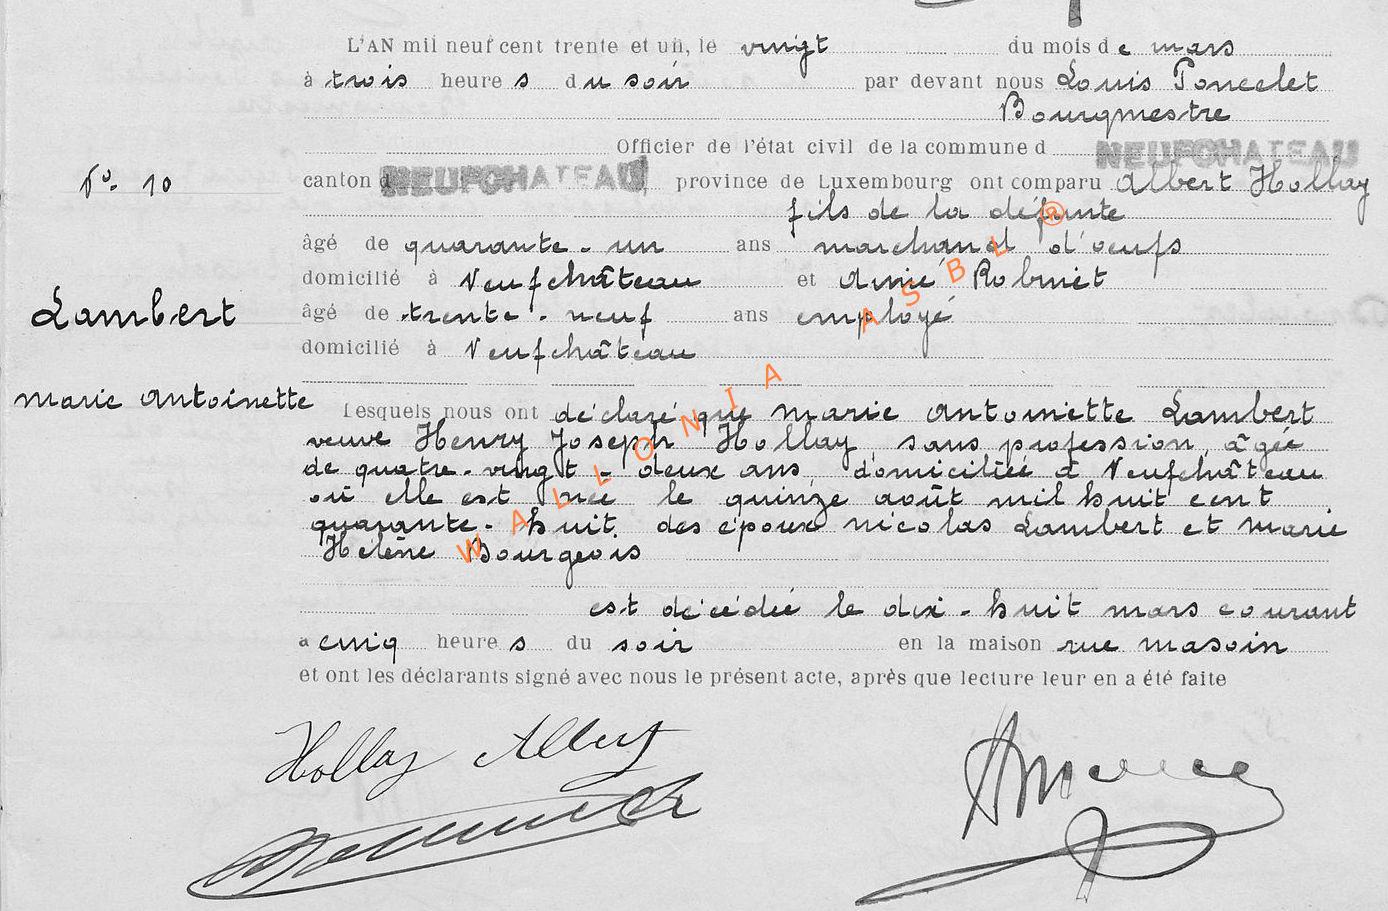 L'AN mil neuf cent trente et un, le vingt du mois de mars
à trois heures du soir par devant nous Louis Poncelet
Bourgmestre
Officier de l'état civil de la commune d NEUFCHATEAU
N° 10
canton d NEUFCHATEAU, province de Luxembourg ont comparu Albert Hollay
fils de la défunte
âgé de quarante-un ans marchand d'oeufs
domicilié à Neufchâteau et Aimé Robinet
Lambert
âgé de trente-neuf ans employé
domicilié à Neufchâteau
Marie Antoinette
Lesquels nous ont déclaré que Marie Antoinette Lambert
veuve Henry Joseph Hollay, sans profession, âgée
de quatre-vingt-deux ans domiciliée à Neufchâteau
où elle est née le quinze août mil huit cent
quarante-huit, des époux Nicolas Lambert et Marie
Hélène Bourgeois
est décédée le dix-huit mars courant
a cinq heures du soir en la maison rue Masoin
et ont les déclarants signé avec nous le présent acte, après que lecture leur en a été faite
Hollay Albert
WALLONIA ASBL ®